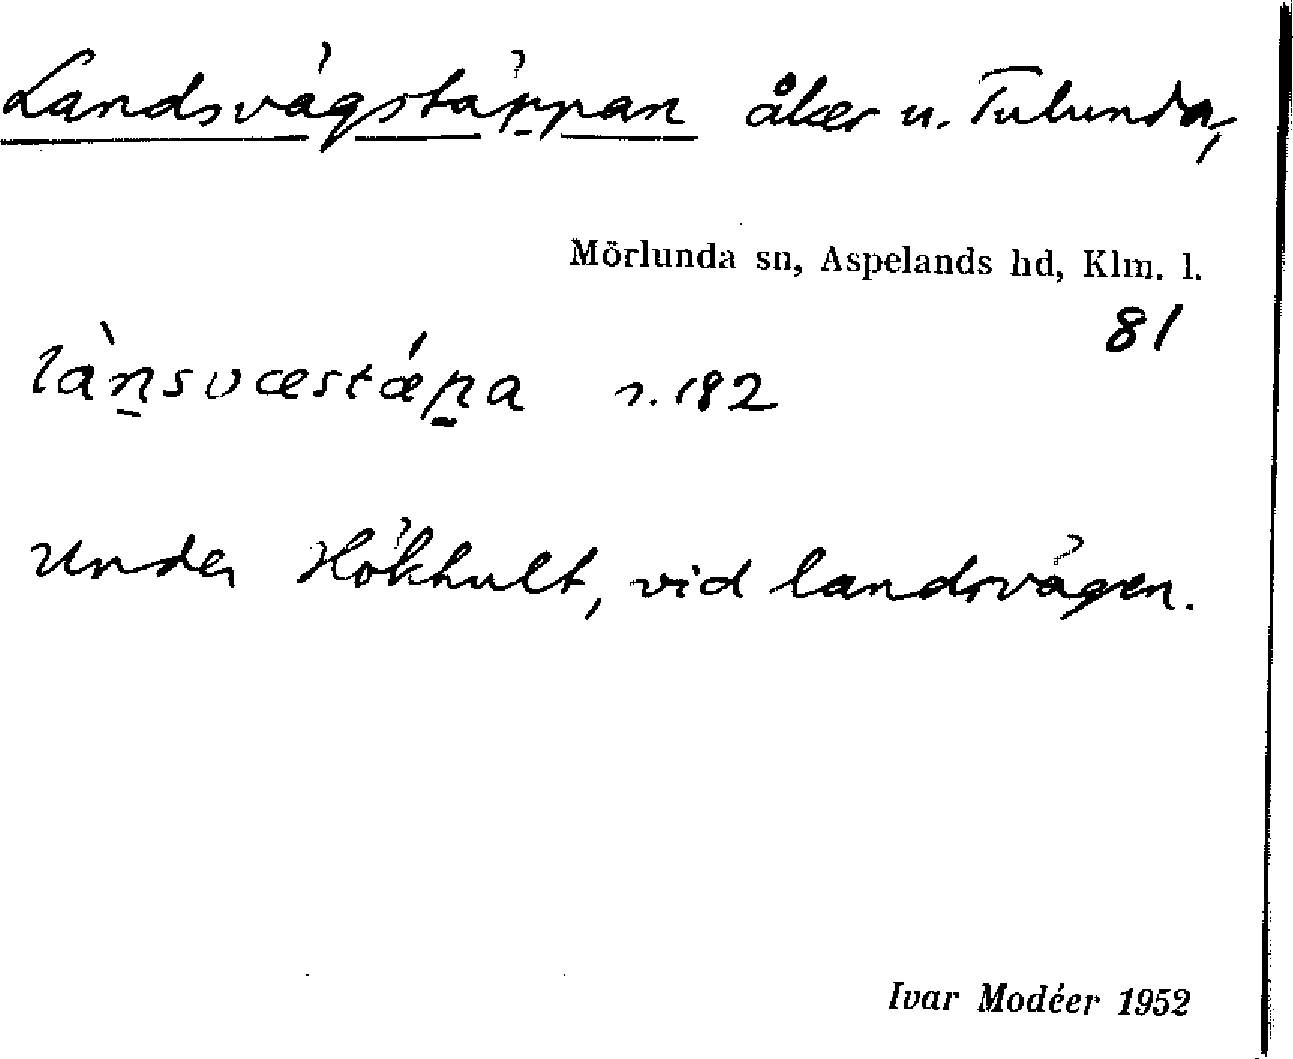 Landsvägstäppan åker u. Tulunda,
Mörlunda sn, Aspelands hd, Klm. l.
81
làn̲svæstǽp̲a s. 182
Under Hökhult, vid landsvägen.
Ivar Modéer 1952